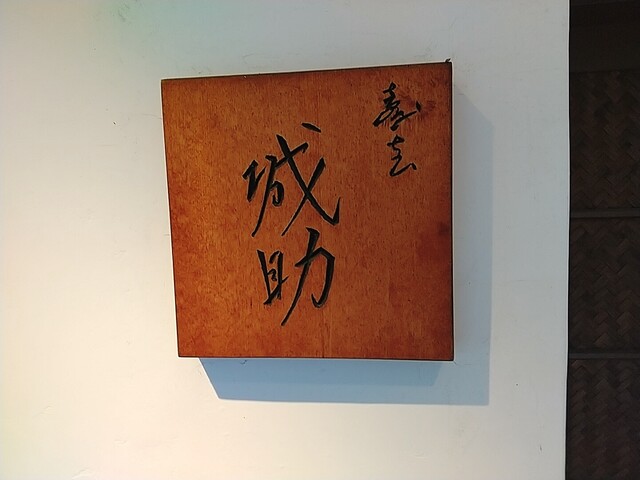 寿司
城助